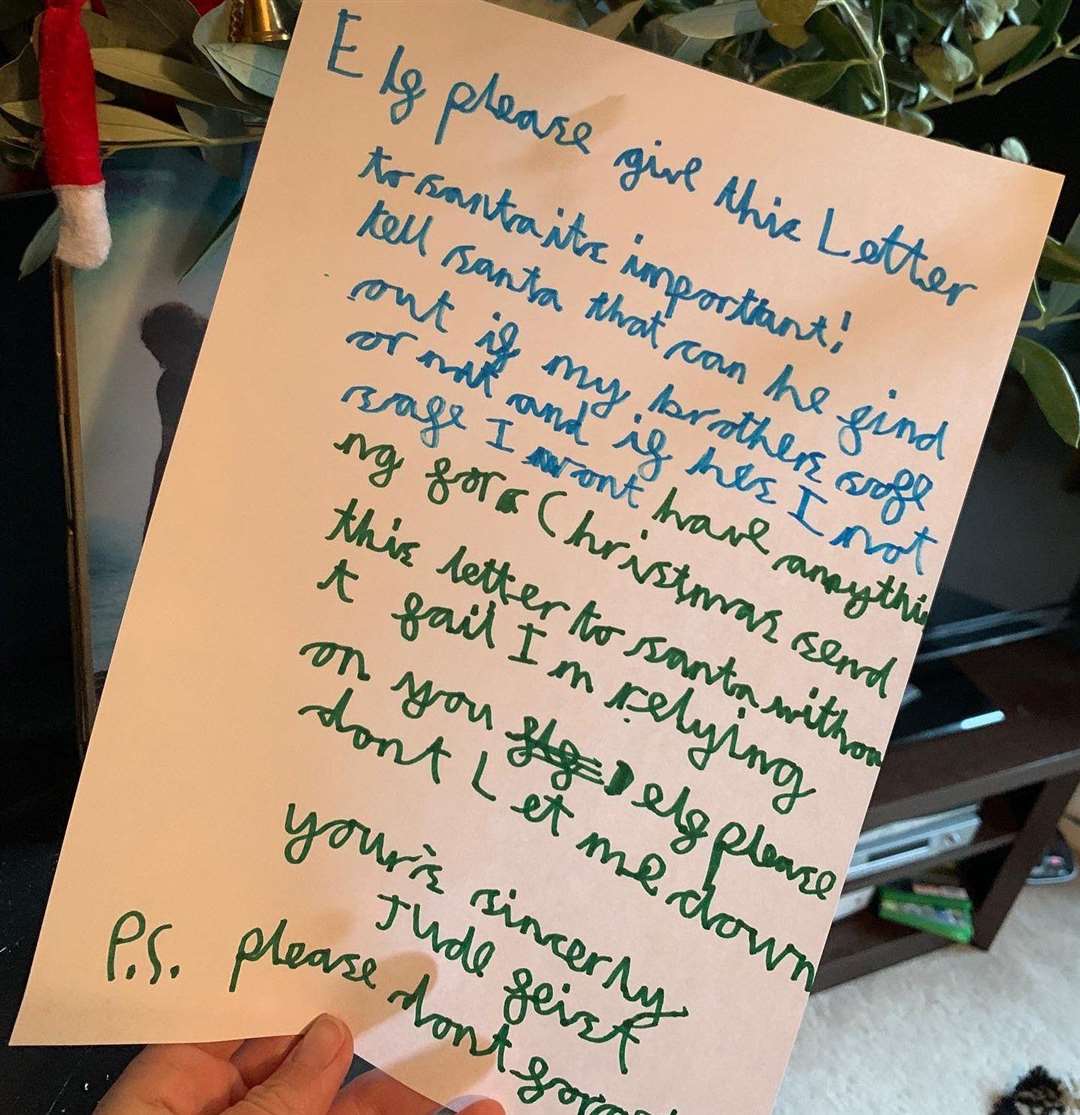 Elf please give this Letter
to santa its important!
tell santa that can he find
out if my brothers safe
or not and if hes I not
safe I wont have anythi
ng for Christmas send
this letter to santa withou
t fail I m relying
on you elf please
dont Let me down
your's sincerly
Jude feist
P.S. please dont